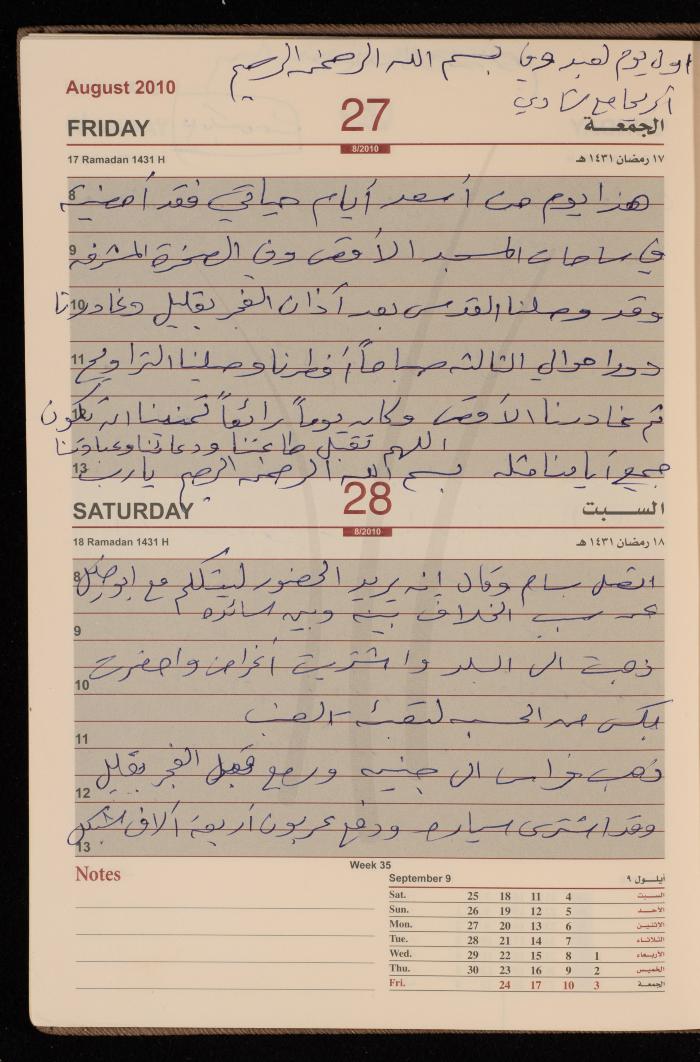 اول يوم لعبد وفي بسم الله الرحمن الرحيم
August 2010
اريحا مع شادي
FRIDAY 27 الجمعة
8/2010
17 Ramadan 1431 H ١٧ رمضان ١٤٣١ هـ
8 هذا يوم من أسعد أيام حياتي فقد أمضيته
9 في ساحات المسجد الأقصى وفي الصخرة المشرفة
10 وقد وصلنا القدس بعد آذان الفجر بقليل وغادرونا
11 دورا حوالي الثالثة صباحاً أفطرنا وصلينا التراويح
12 ثم غادرنا الأقصى وكان يوماً رائعاً تمنينا ان تكون
اللهم تقبل طاعتنا ودعائنا وعبادتنا
13 جميع أيامنا مثله بسم الله الرحمن الرحيم يا رب
SATURDAY 28 السبت
8/2010
18 Ramadan 1431 H ١٨ رمضان ١٤٣١ هـ
8 اتصل بسام وقال إنه يريد الحضور ليتكلم مع ابو
عن سبب الخلاف بينه وبين
9
ذهبت الى البلد واشتريت أغراض واحضرت
10
من الحسبه لتعبئة العنب
11
ذهب فراس الى جنين ورجع قبل الفجر بقليل
12
وقد اشترى سياره ودفع عربون أربعة آلاف شيكل
13
Notes
Week 35
September 9 أيلـول ٩
Sat. 25 18 11 4 السبت
Sun. 26 19 12 5 الأحد
Mon. 27 20 13 6 الاثنين
Tue. 28 21 14 7 الثلاثاء
Wed. 29 22 15 8 1 الأربعاء
Thu. 30 23 16 9 2 الخميس
Fri. 24 17 10 3 الجمعة